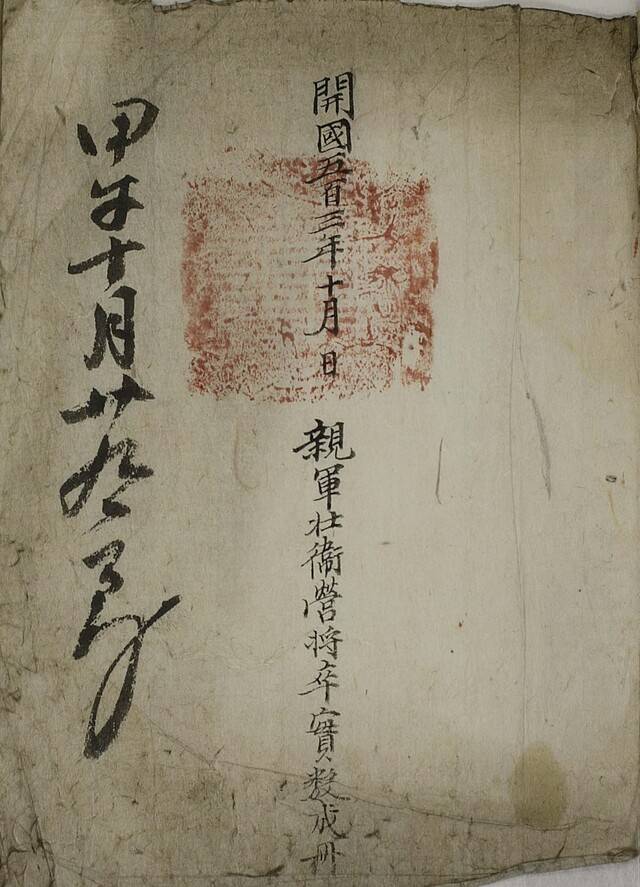 開國五百三年十月日 親軍壯衞營將卒實數成冊
甲午十月廿九日